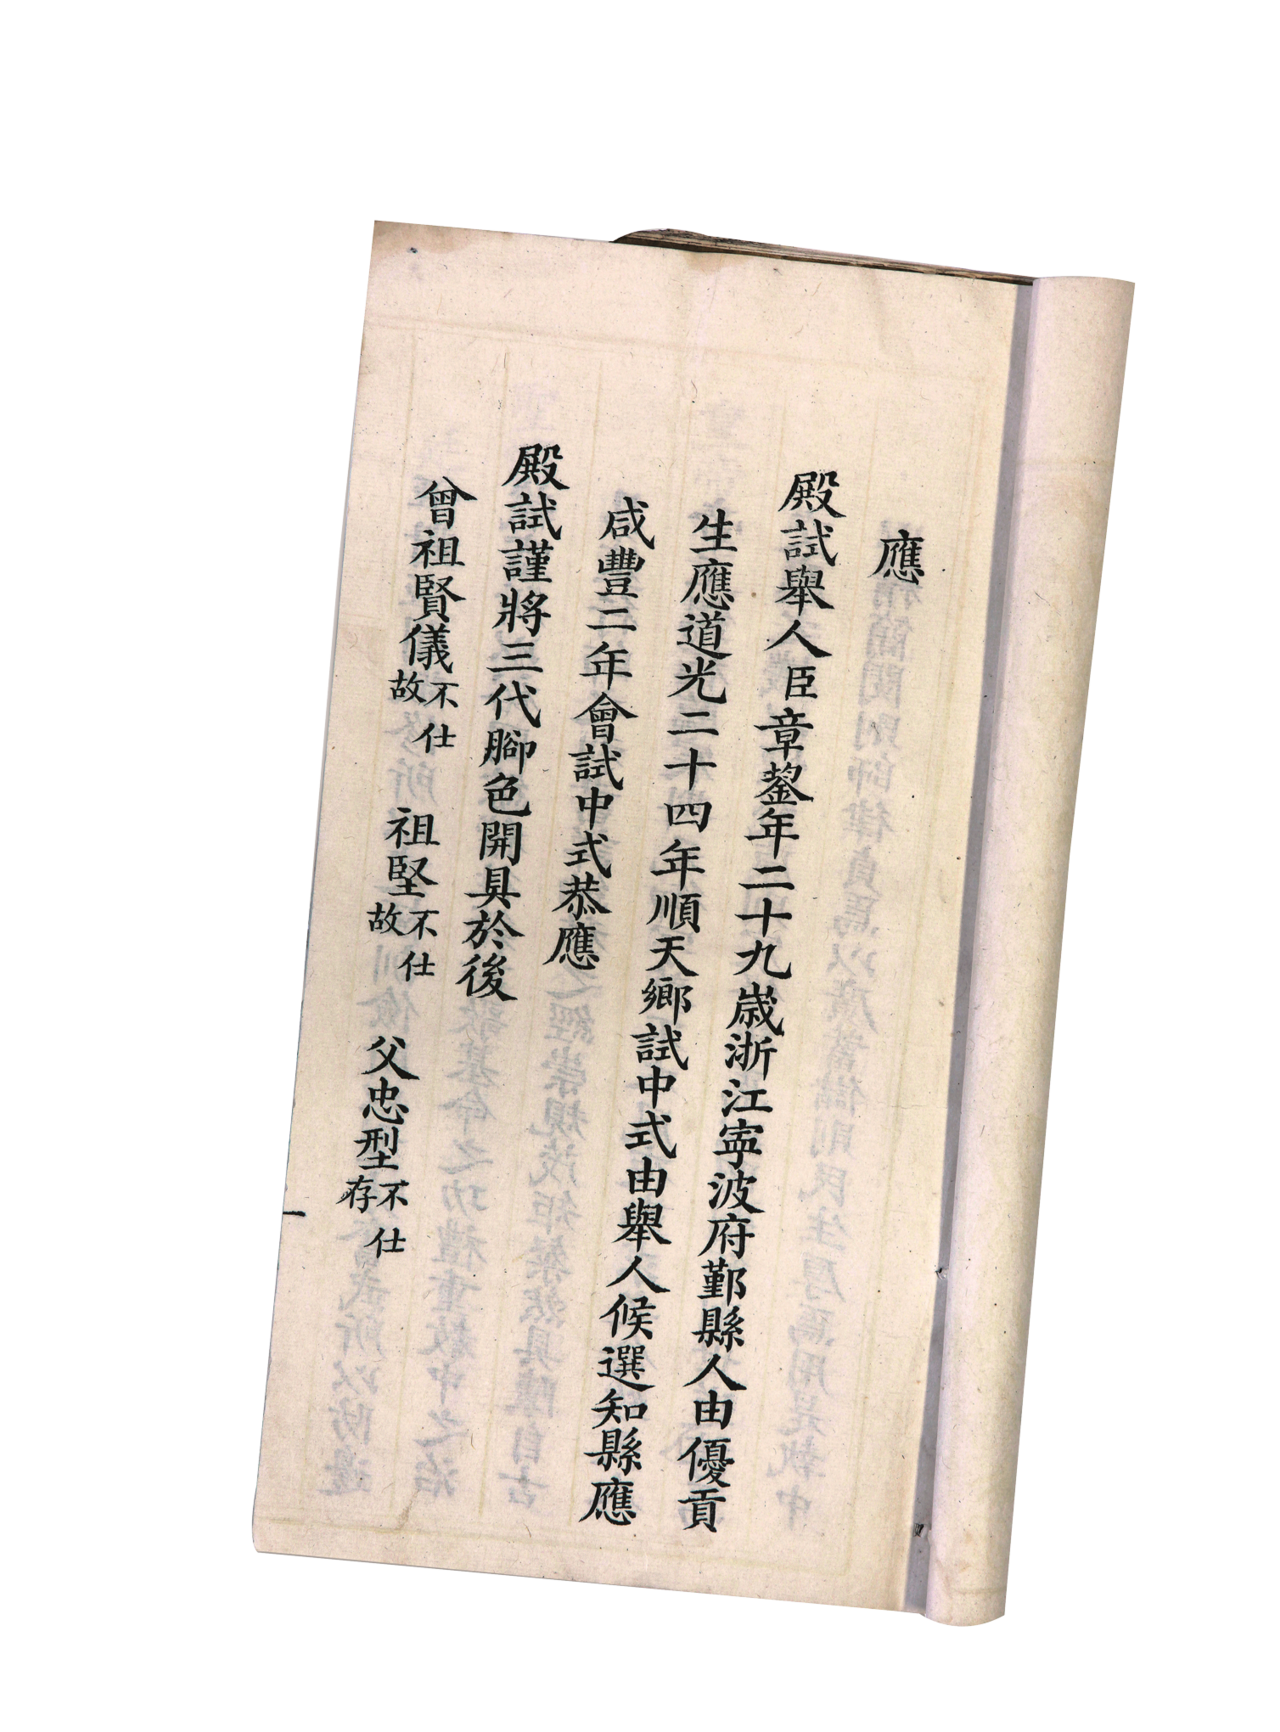 應
殿試舉人臣章鋆年二十九歲浙江寧波府鄞縣人由優貢
生應道光二十四年順天鄉試中式由舉人候選知縣應
咸豐二年會試中式恭應
殿試謹將三代腳色開具於後
曾祖賢儀不仕故 祖堅不仕故 父忠型不仕存